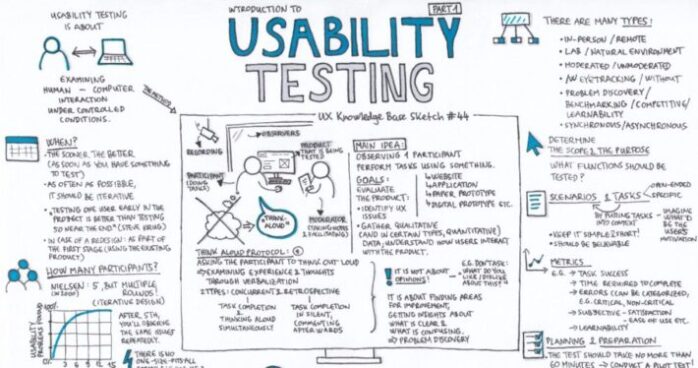 USABILITY TESTING
IS ABOUT
EXAMINING
HUMAN - COMPUTER
INTERACTION
UNDER CONTROLLED
CONDITIONS.
INTRODUCTION TO
PART 1
USABILITY
TESTING
UX Knowledge Base Sketch #44
THE METHOD
WHEN?
• THE SOONER, THE BETTER
(AS SOON AS YOU HAVE SOMETHING
TO TEST)
• AS OFTEN AS POSSIBLE,
IT SHOULD BE ITERATIVE
• "TESTING ONE USER EARLY IN THE
PROJECT IS BETTER THAN TESTING
50 NEAR THE END" (STEVE KRUG)
• IN CASE OF A REDESIGN: AS PART OF
THE FIRST STAGE (USING THE EXISTING
PRODUCT)
HOW MANY PARTICIPANTS?
NIELSEN: 5, BUT MULTIPLE
(IN 2000) ROUNDS!
(ITERATIVE DESIGN)
USABILITY
PROBLEMS FOUND
100%
0%
3 6 9 12 15
AFTER 5TH,
YOU'LL OBSERVE
THE SAME ISSUES
REPEATEDLY.
THERE IS NO
ONE-SIZE-FITS-ALL
OBSERVERS
RECORDING
PRODUCT
THAT IS BEING
TESTED
PARTICIPANT
(DOING
TASKS)
"THINK-
ALOUD"
MODERATOR
(TAKING NOTES
& FACILITATING)
THINK ALOUD PROTOCOL:
ASKING THE PARTICIPANT TO THINK OUT LOUD
⇒ EXAMINING EXPERIENCE & THOUGHTS
THROUGH VERBALIZATION
2 TYPES: CONCURRENT & RETROSPECTIVE
TASK COMPLETION
&
THINKING ALOUD
SIMULTANEOUSLY
TASK COMPLETION
IN SILENT,
COMMENTING
AFTERWARDS
MAIN IDEA:
OBSERVING 1 PARTICIPANT
PERFORM TASKS USING SOMETHING.
↳ WEBSITE
↳ APPLICATION
↳ PAPER PROTOTYPE
↳ DIGITAL PROTOTYPE ETC.
GOALS:
EVALUATE
THE PRODUCT:
• IDENTIFY UX
ISSUES
• GATHER QUALITATIVE
(AND IN CERTAIN TYPES, QUANTITATIVE)
DATA, UNDERSTAND HOW USERS INTERACT
WITH THE PRODUCT.
! IT IS NOT ABOUT
OPINIONS!
E.G. DON'T ASK:
"WHAT DO YOU
LIKE / DISLIKE
ABOUT THIS?"
IT IS ABOUT FINDING AREAS
FOR IMPROVEMENT,
GETTING INSIGHTS ABOUT
WHAT IS CLEAR &
WHAT IS CONFUSING.
⇒ PROBLEM DISCOVERY
THERE ARE MANY TYPES:
• IN-PERSON / REMOTE
• LAB / NATURAL ENVIRONMENT
• MODERATED / UNMODERATED
• W EYETRACKING / WITHOUT
• PROBLEM DISCOVERY /
BENCHMARKING / COMPETITIVE /
LEARNABILITY
• SYNCHRONOUS / ASYNCHRONOUS
DETERMINE
THE SCOPE & THE PURPOSE
WHAT FUNCTIONS SHOULD BE
TESTED?
SCENARIOS & TASKS
OPEN-ENDED
SPECIFIC
BY PUTTING TASKS
INTO CONTEXT
IMAGINE
WHAT'D BE
THE USER'S
MOTIVATION
• KEEP IT SIMPLE & SHORT!
• SHOULD BE BELIEVABLE
METRICS
E.G. → TASK SUCCESS
→ TIME REQUIRED TO COMPLETE
→ ERRORS (CAN BE CATEGORIZED,
E.G. CRITICAL, NON-CRITICAL)
→ SUBJECTIVE - SATISFACTION
- EASE OF USE ETC.
→ LEARNABILITY
PLANNING & PREPARATION
• THE TEST SHOULD TAKE NO MORE THAN
60 MINUTES → CONDUCT A PILOT TEST!